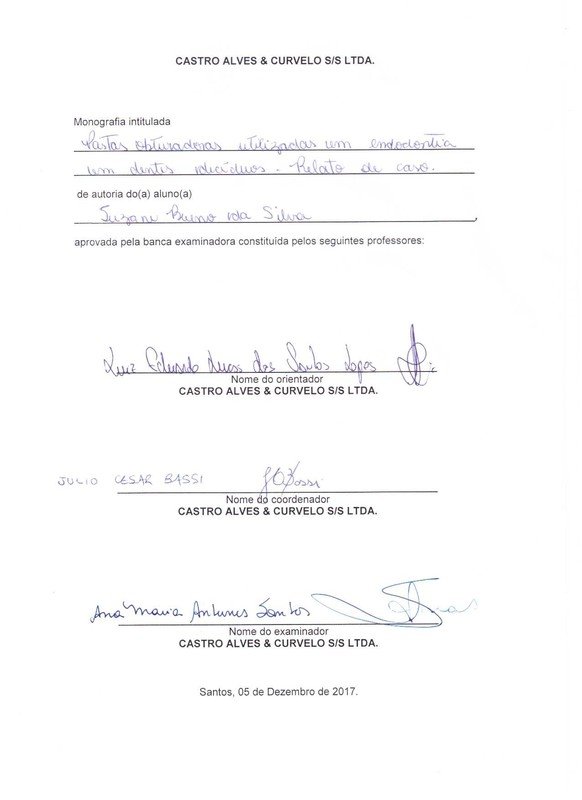 CASTRO ALVES & CURVELO S/S LTDA.
Monografia intitulada
Pastas obturadoras utilizadas em endodontia
em dentes decíduos. Relato de caso.
de autoria do(a) aluno(a)
Suzani Bueno da Silva
aprovada pela banca examinadora constituída pelos seguintes professores:
Luiz Eduardo dos Santos Lopes
Nome do orientador
CASTRO ALVES & CURVELO S/S LTDA.
JULIO CESAR BASSI
Nome do coordenador
CASTRO ALVES & CURVELO S/S LTDA.
Ana Maria Antunes Santos
Nome do examinador
CASTRO ALVES & CURVELO S/S LTDA.
Santos, 05 de Dezembro de 2017.